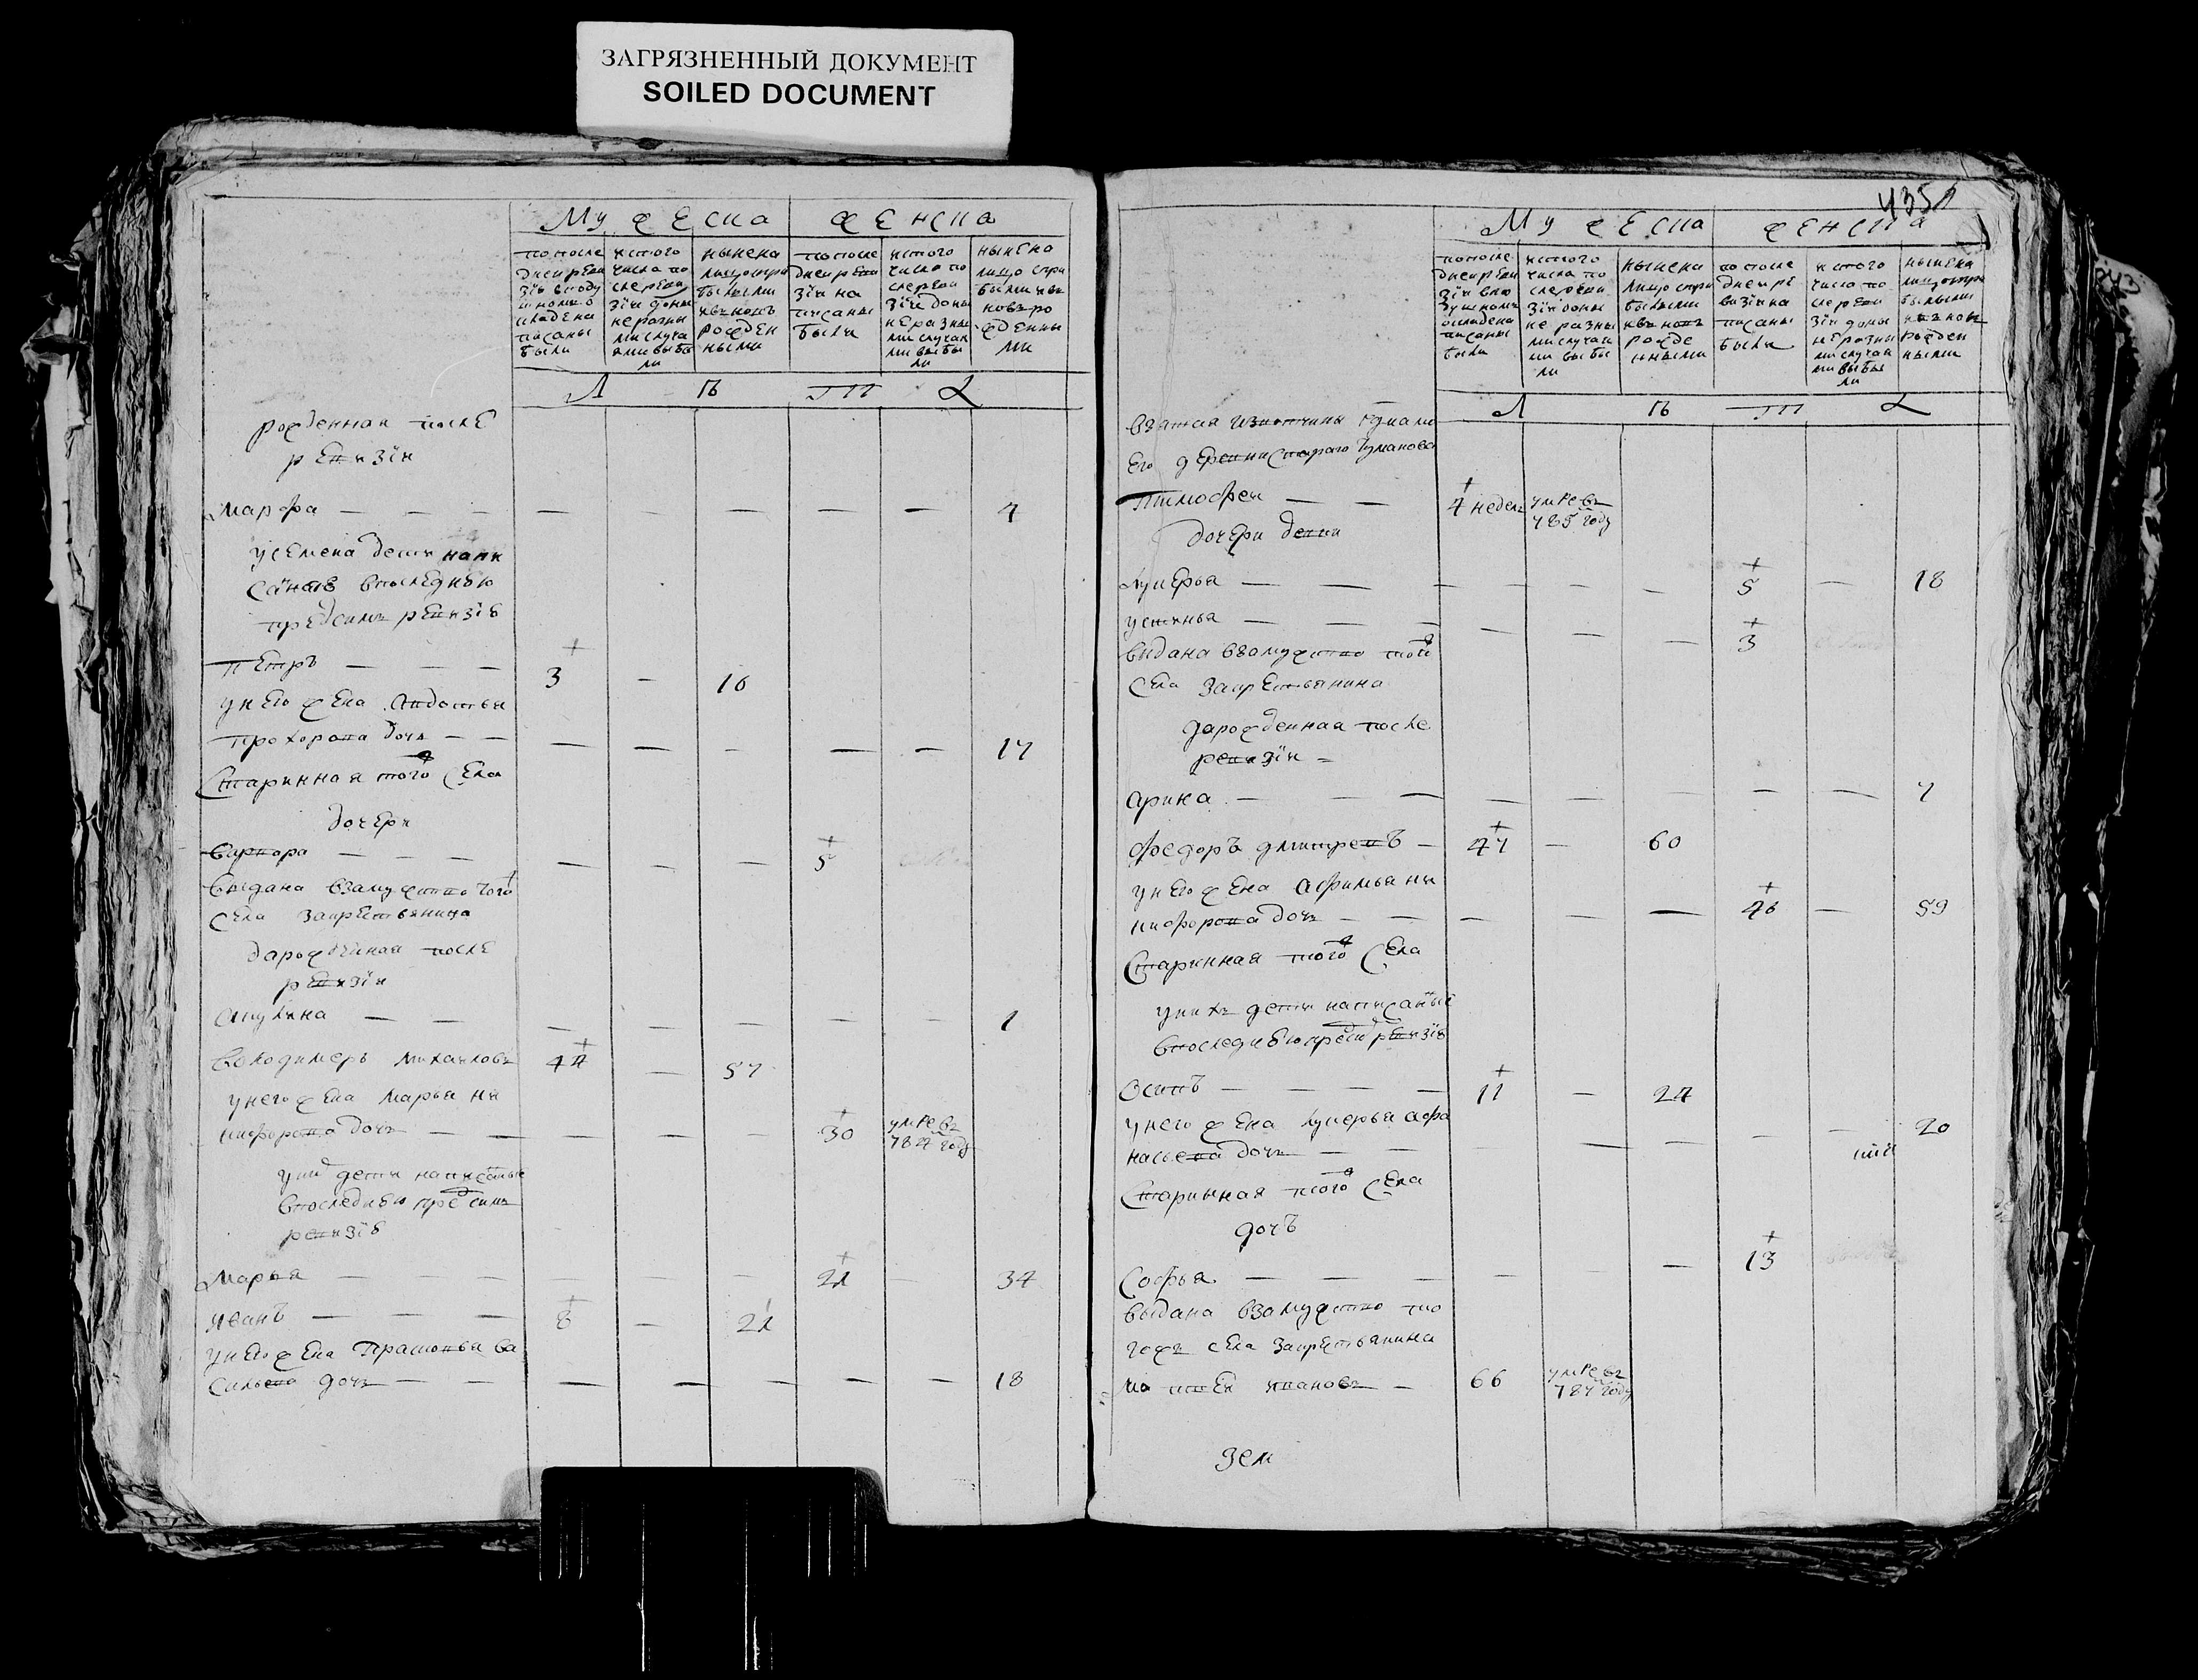 ЗАГРЯЗНЕННЫЙ ДОКУМЕНТ
SOILED DOCUMENT
Мужеска женска
по последней ревизіи в подушном окладе написаны были
ис того числа после ревизіи до ныне разными случаями выбыли
ныне на лицо с прибылыми и вновь рожденными
по последней ревизіи написаны были
ис того числа после ревизіи до ныне разными случаями выбыли
ныне на лицо с прибылыми и вновь рожденными
Л Ѣ Т А
рожденная после
ревизіи
марфа — — — — — — — — 4
у семена дети напи
саные в последнюю
пред сим ревизію
петръ — — — 3 — 16
у него жена авдотья
прохорова дочь — — — — — — — 17
старинная того ж села
дочери
варвара — — — — — — 5
выдана в замужство того ж
села за крестьянина
да рожденная после
ревизіи
акулина — — — — — — — 1
володимеръ михаиловъ 44 — 57
у него жена марья ни
кифорова дочь — — — — — 30 умре въ 782 году
у них дети написаные
в последнюю пред симъ
ревизію
марья — — — — — — 21 — 34
иванъ — — — 8 — 21
у него жена прасковья ва
сильева дочь — — — — — — — 18
435
Мужеска женска
по последней ревизіи в подушном окладе написаны были
ис того числа после ревизіи до ныне разными случаями выбыли
ныне на лицо с прибылыми и вновь рожденными
по последней ревизіи написаны были
ис того числа после ревизіи до ныне разными случаями выбыли
ныне на лицо с прибылыми и вновь рожденными
Л Ѣ Т А
взятая из вотчины
его деревни Стараго Туманова
тимофеи — — 4 недель умре въ 785 году
дочери девки
лукерья — — — — — — 5 — 18
устинья — — — — — — 3
выдана в замужство того ж
села за крестьянина
да рожденная после
ревизіи
арина — — — — — — — — 7
федоръ дмитревъ — 47 — 60
у него жена афимья ни
кифорова дочь — — — — — 46 — 59
старинная того ж села
у них дети написаные
в последнюю пред сим ревизію
осипъ — — — — 11 — 24
у него жена лукерья афа
насьева дочь — — — — — — 20
старинная того ж села
дочь
софья — — — — — — 13
выдана в замужство то
гожъ села за крестьянина
матвеи ивановъ — 66 умре въ 784 году